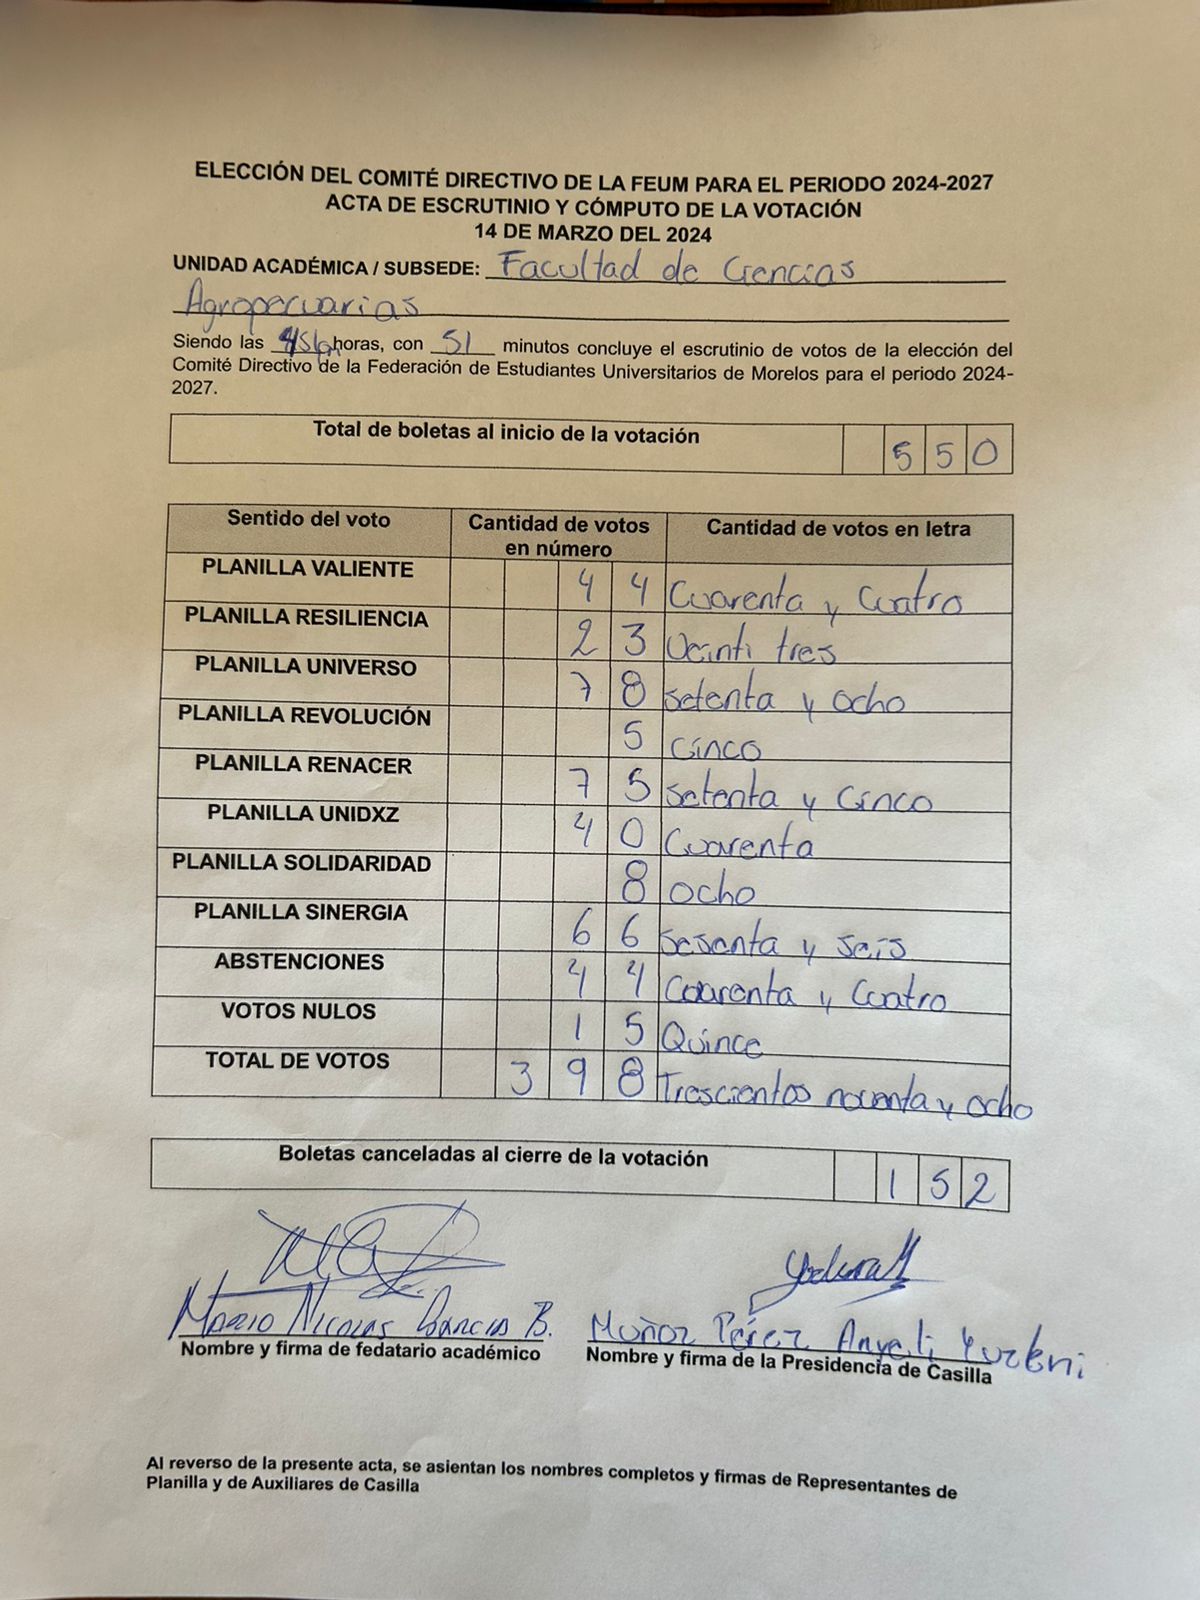 ELECCIÓN DEL COMITÉ DIRECTIVO DE LA FEUM PARA EL PERIODO 2024-2027
ACTA DE ESCRUTINIO Y CÓMPUTO DE LA VOTACIÓN
14 DE MARZO DEL 2024
UNIDAD ACADÉMICA / SUBSEDE: Facultad de Ciencias
Agropecuarias
Siendo las horas, con 51 minutos concluye el escrutinio de votos de la elección del
Comité Directivo de la Federación de Estudiantes Universitarios de Morelos para el periodo 2024-
2027.
Total de boletas al inicio de la votación 5 5 0
Sentido del voto Cantidad de votos en número Cantidad de votos en letra
PLANILLA VALIENTE 4 4 Cuarenta y Cuatro
PLANILLA RESILIENCIA 2 3 Veinti tres
PLANILLA UNIVERSO 7 8 Setenta y ocho
PLANILLA REVOLUCIÓN 5 Cinco
PLANILLA RENACER 7 5 Setenta y Cinco
PLANILLA UNIDXZ 4 0 Cuarenta
PLANILLA SOLIDARIDAD 8 ocho
PLANILLA SINERGIA 6 6 Sesenta y seis
ABSTENCIONES 4 4 Cuarenta y Cuatro
VOTOS NULOS 1 5 Quince
TOTAL DE VOTOS 3 9 8 Trescientos noventa y ocho
Boletas canceladas al cierre de la votación 1 5 2
Mario Nicolas Garcia B. Muñoz Pérez Anyeli Yurleni
Nombre y firma de fedatario académico Nombre y firma de la Presidencia de Casilla
Al reverso de la presente acta, se asientan los nombres completos y firmas de Representantes de
Planilla y de Auxiliares de Casilla